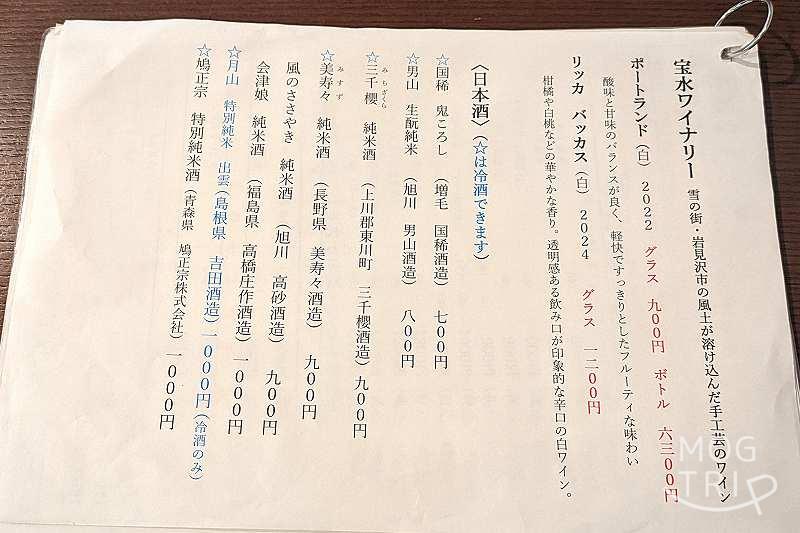 宝水ワイナリー 雪の街・岩見沢市の風土が溶け込んだ手工芸のワイン
ポートランド(白) 2022 グラス 九00円 ボトル 六三00円
酸味と甘味のバランスが良く、軽快ですっきりとしたフルーティな味わい
リッカ バッカス(白) 2024 グラス 一二00円
柑橘や白桃などの華やかな香り。透明感ある飲み口が印象的な辛口の白ワイン。
〈日本酒〉(☆は冷酒できます)
☆国稀 鬼ころし (増毛 国稀酒造) 七00円
☆男山 生酛純米 (旭川 男山酒造) 八00円
☆三千櫻 純米酒 (上川郡東川町 三千櫻酒造) 九00円
みちざくら
☆美寿々 純米酒 (長野県 美寿々酒造) 九00円
みすず
風のささやき 純米酒 (旭川 高砂酒造) 九00円
会津娘 純米酒 (福島県 高橋庄作酒造) 一000円
☆月山 特別純米 出雲(島根県 吉田酒造) 一000円(冷酒のみ)
☆鳩正宗 特別純米酒 (青森県 鳩正宗株式会社) 一000円
MOG
TRIP